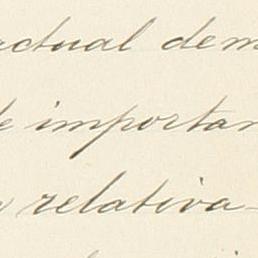 actual dem
importan
relativa-